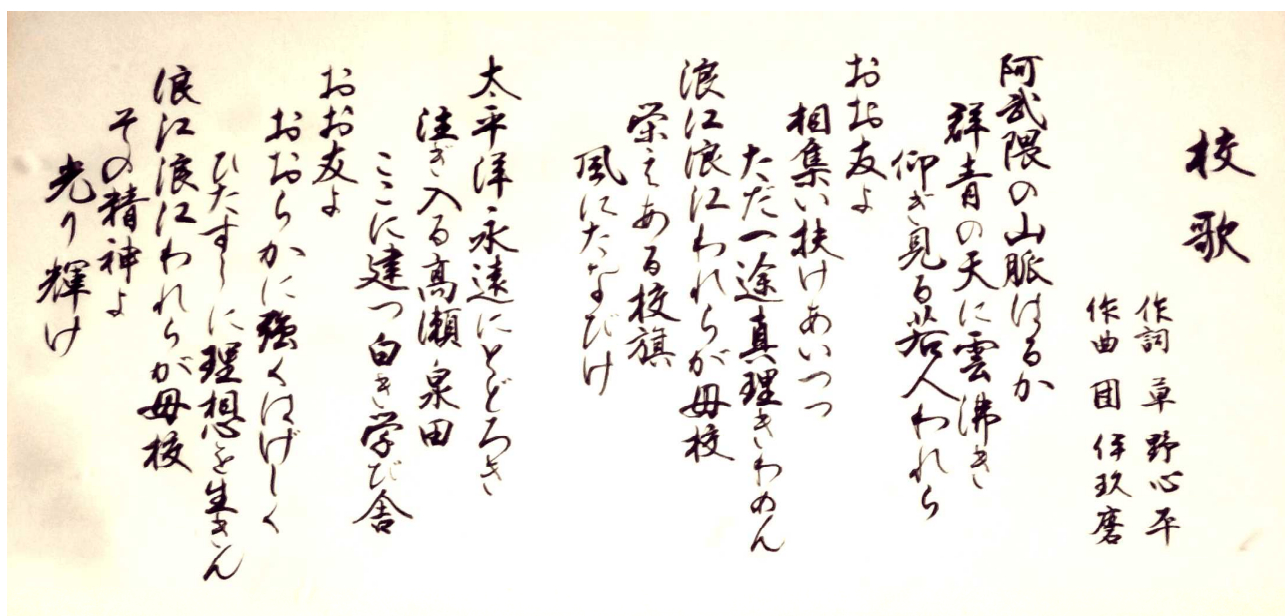 校歌
作詞 草野心平
作曲 團 伊玖磨
阿武隈の山脈はるか
群青の天に雲沸き
仰ぎ見る若人われら
おお友よ
相集い扶けあいつつ
ただ一途真理きわめん
浪江浪江われらが母校
栄えある校旗
風にたなびけ
太平洋永遠にとどろき
注ぎ入る高瀬泉田
ここに建つ白き学び舎
おお友よ
おおらかに強くはげしく
ひたすらに理想を生きん
浪江浪江われらが母校
その精神よ
光り輝け